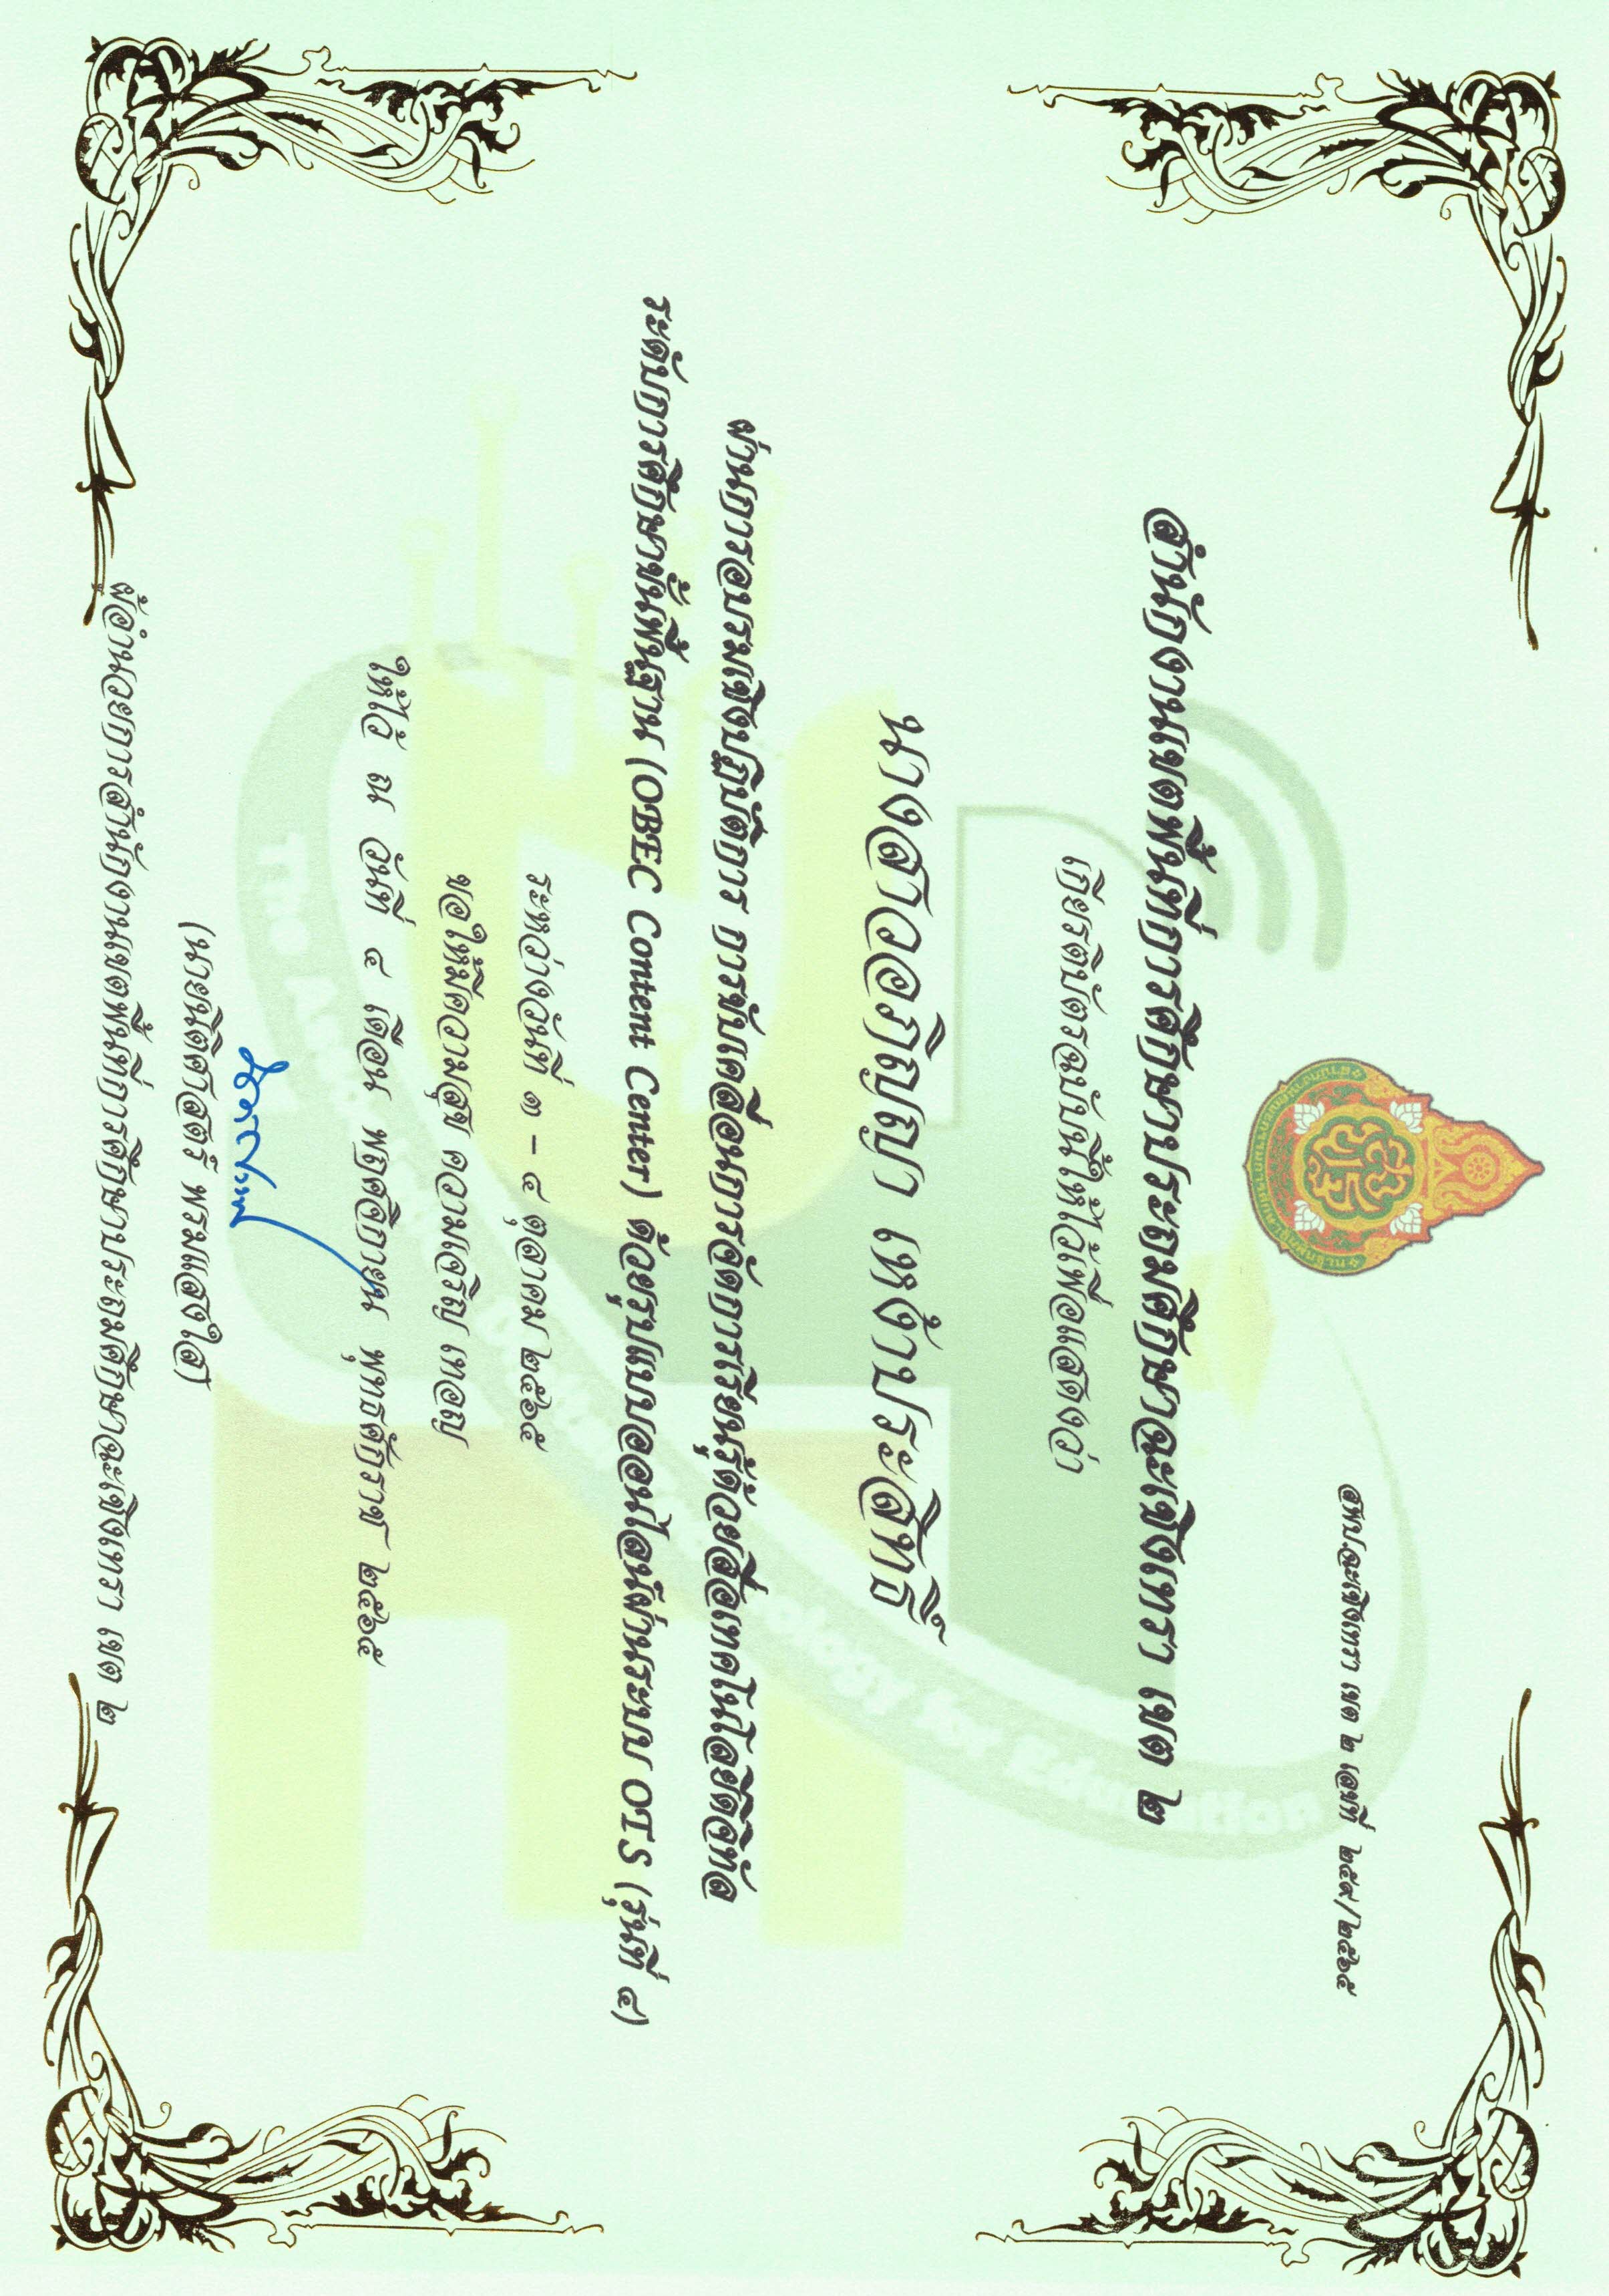 สพป.ฉะเชิงเทรา เขต ๒ เลขที่ ๒๕๙/๒๕๖๕
สำนักงานเขตพื้นที่การศึกษาประถมศึกษาฉะเชิงเทรา เขต ๒
เกียรติบัตรฉบับนี้ให้ไว้เพื่อแสดงว่า
นางสาวอภิญญา เหง้าประสิทธิ์
ผ่านการอบรมเชิงปฏิบัติการ การขับเคลื่อนการจัดการเรียนรู้ด้วยสื่อเทคโนโลยีดิจิทัล
ระดับการศึกษาขั้นพื้นฐาน (OBEC Content Center) ด้วยรูปแบบออนไลน์ผ่านระบบ OTS (รุ่นที่ ๔)
ระหว่างวันที่ ๓ - ๔ ตุลาคม ๒๕๖๕
ขอให้มีความสุข ความเจริญ เทอญ
ให้ไว้ ณ วันที่ ๔ เดือน พฤศจิกายน พุทธศักราช ๒๕๖๕
(นายนิติศาสตร์ พรมแสงใส)
ผู้อำนวยการสำนักงานเขตพื้นที่การศึกษาประถมศึกษาฉะเชิงเทรา เขต ๒